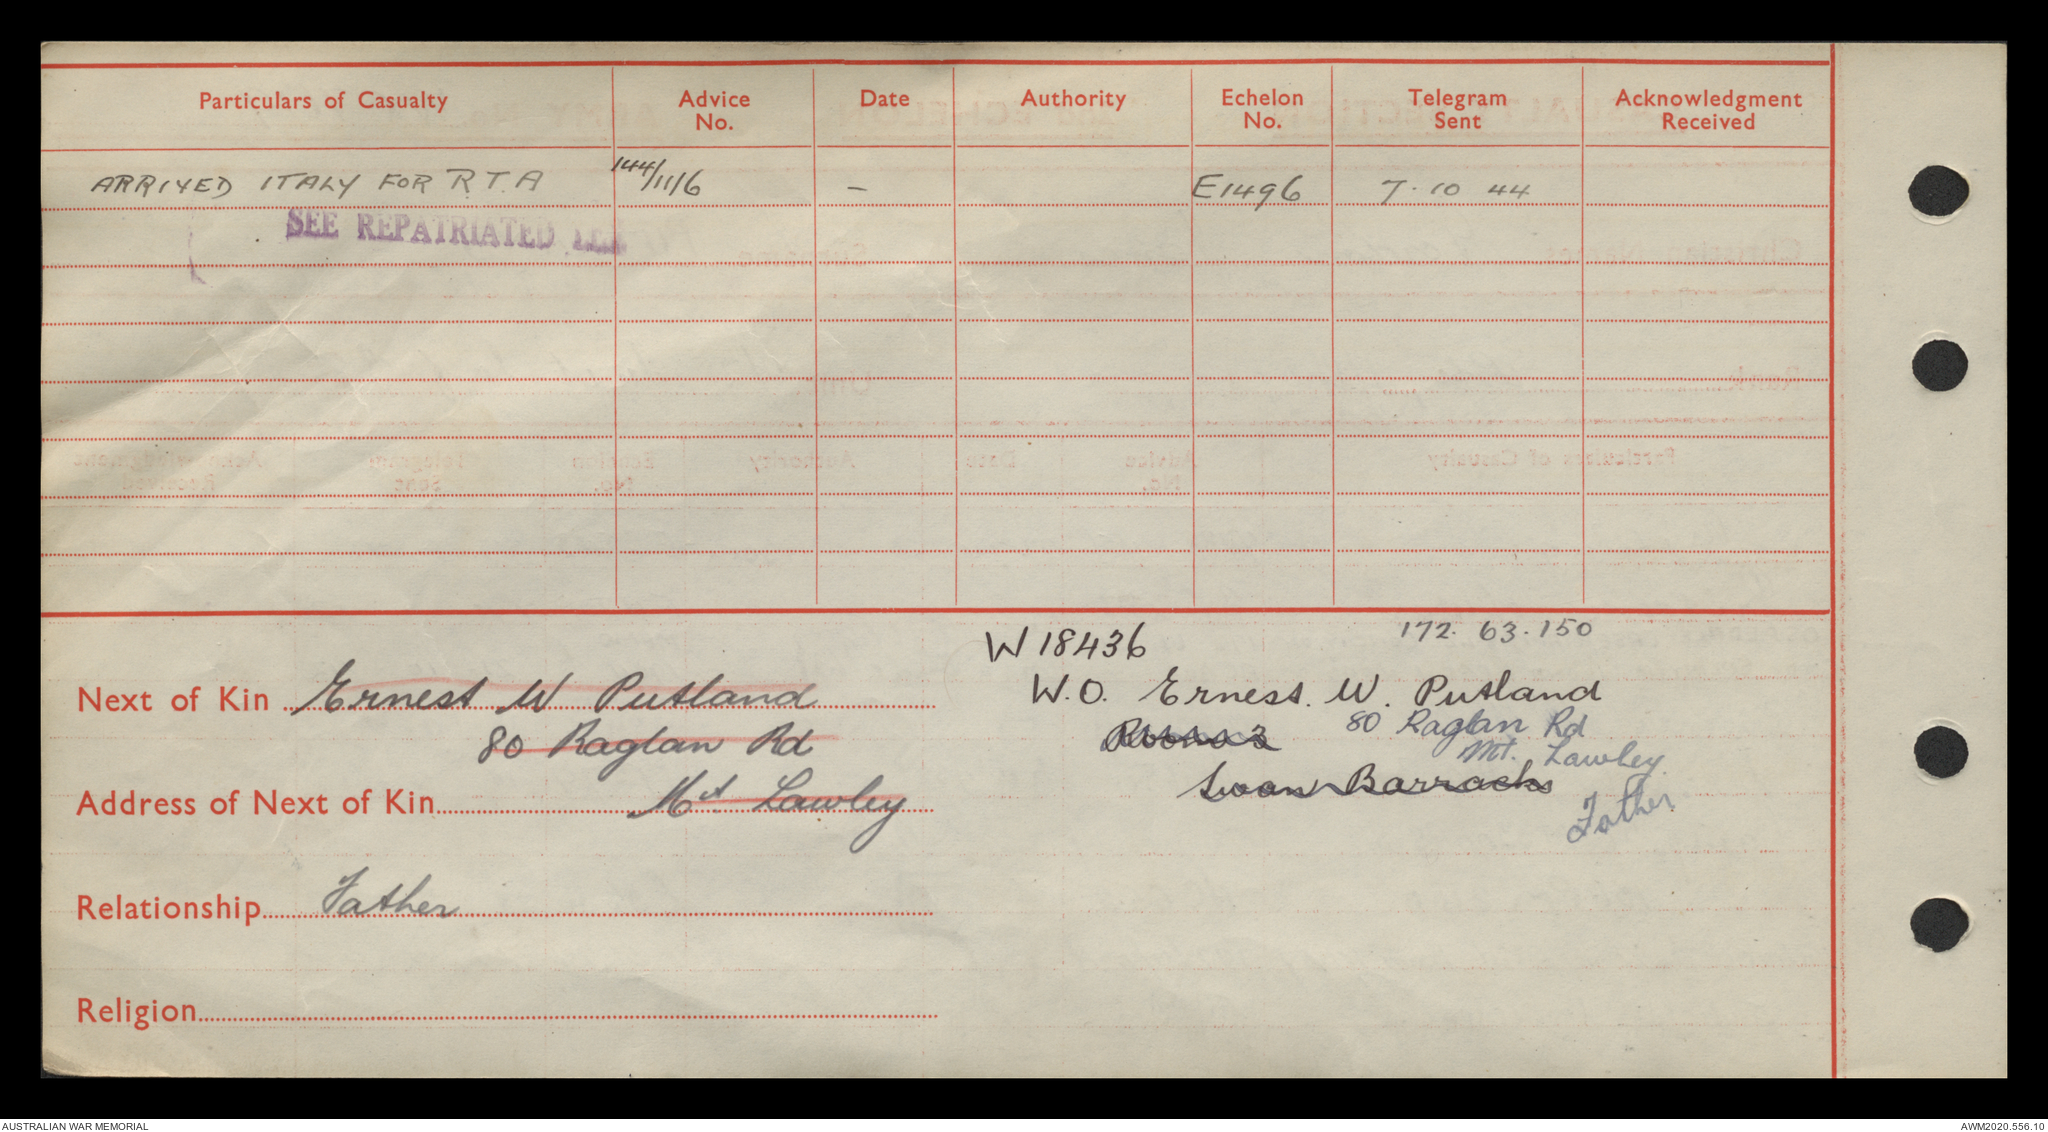 Particulars of Casualty Advice No. Date Authority Echelon No. Telegram Sent Acknowledgment Received
ARRIVED ITALY FOR R.T.A 144/11/6 – E1496 7.10 44
SEE REPATRIATED
W 18436 172. 63. 150
Next of Kin Ernest W Putland
W.O. Ernest. W. Putland
80 Raglan Rd
80 Raglan Rd
Mt. Lawley
Address of Next of Kin Mt Lawley
Swan Barracks
Father
Relationship Father
Religion
AUSTRALIAN WAR MEMORIAL AWM2020.556.10